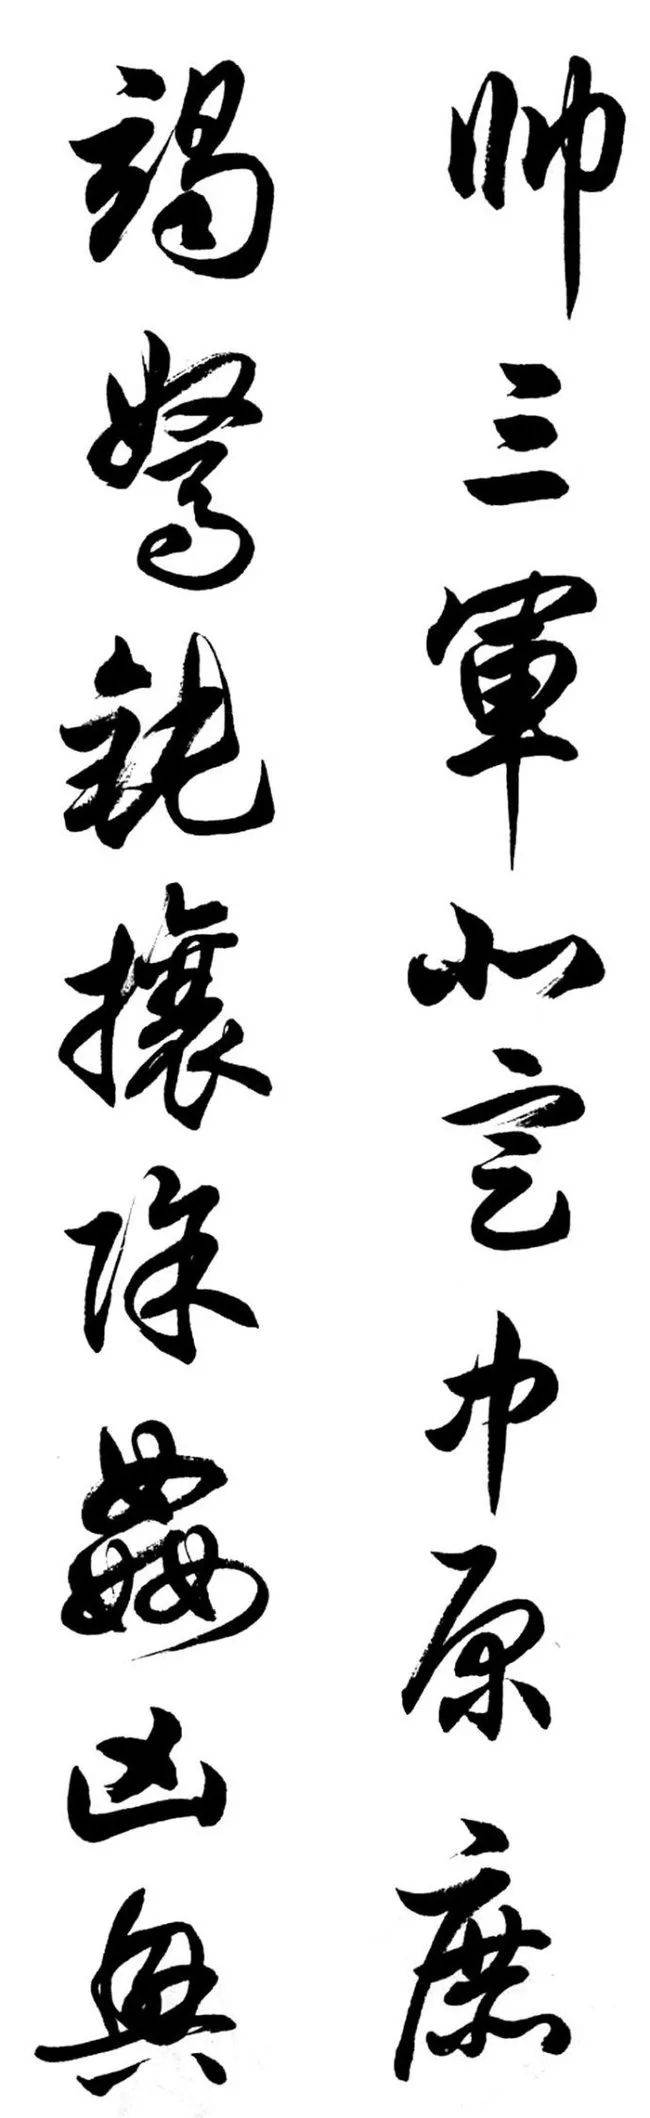 帥三軍北定中原庶
竭駑鈍攘除姦凶興